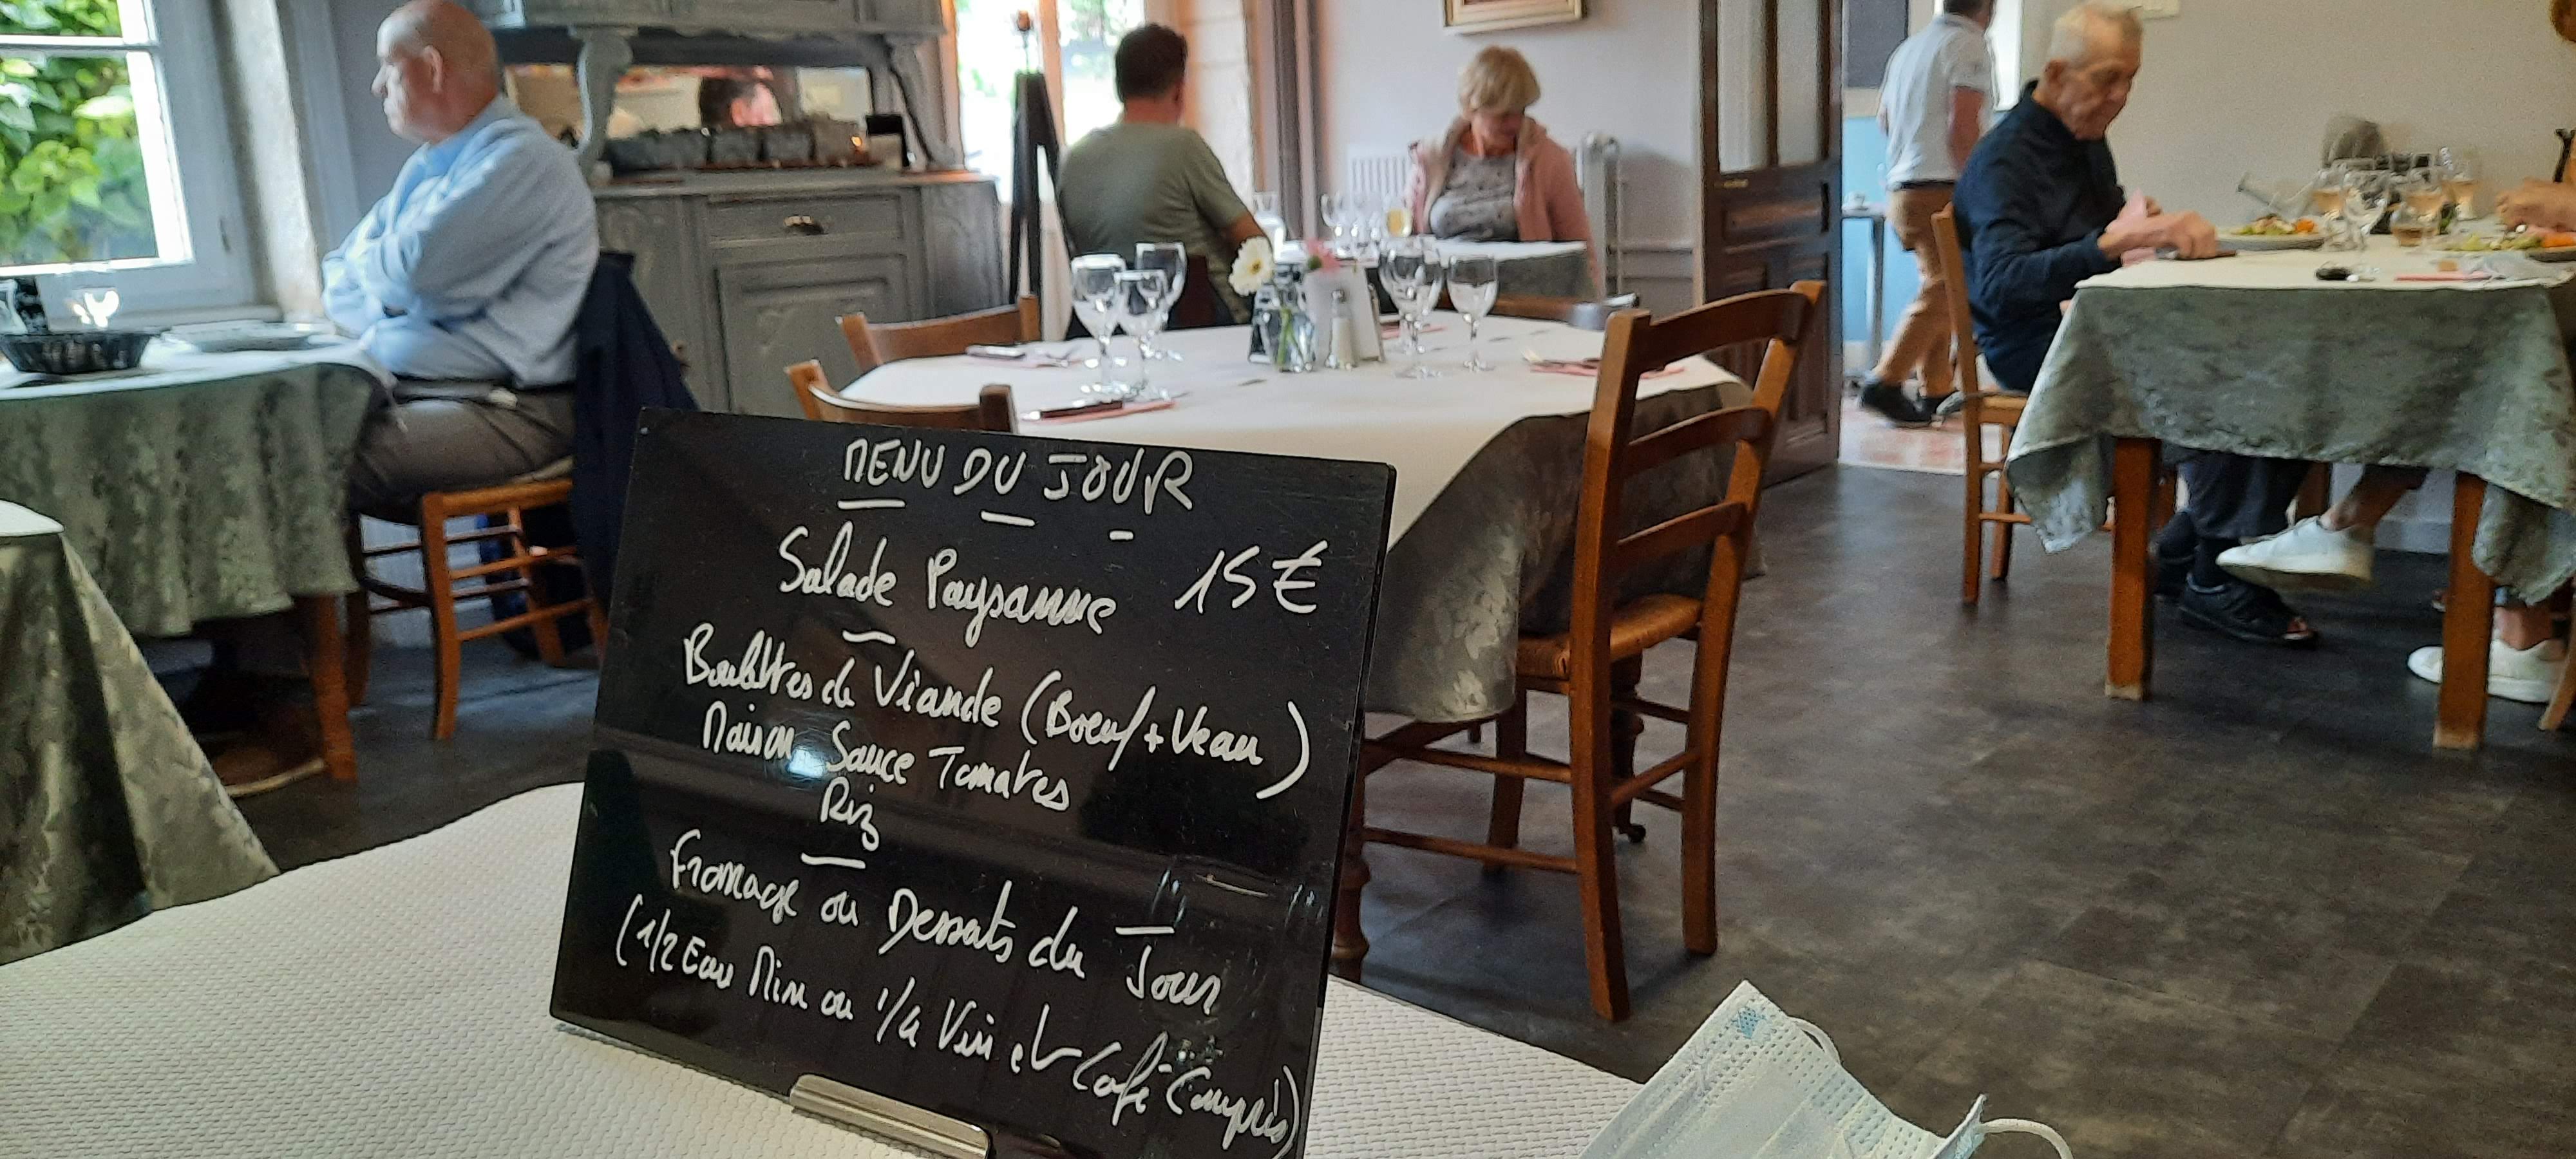 MENU DU JOUR
Salade Paysanne 15€
Boulettes de Viande (Boeuf + Veau)
Maison Sauce Tomates
Riz
Fromage ou Desserts du Jour
(1/2 Eau Min ou 1/4 Vin et Café Compris)